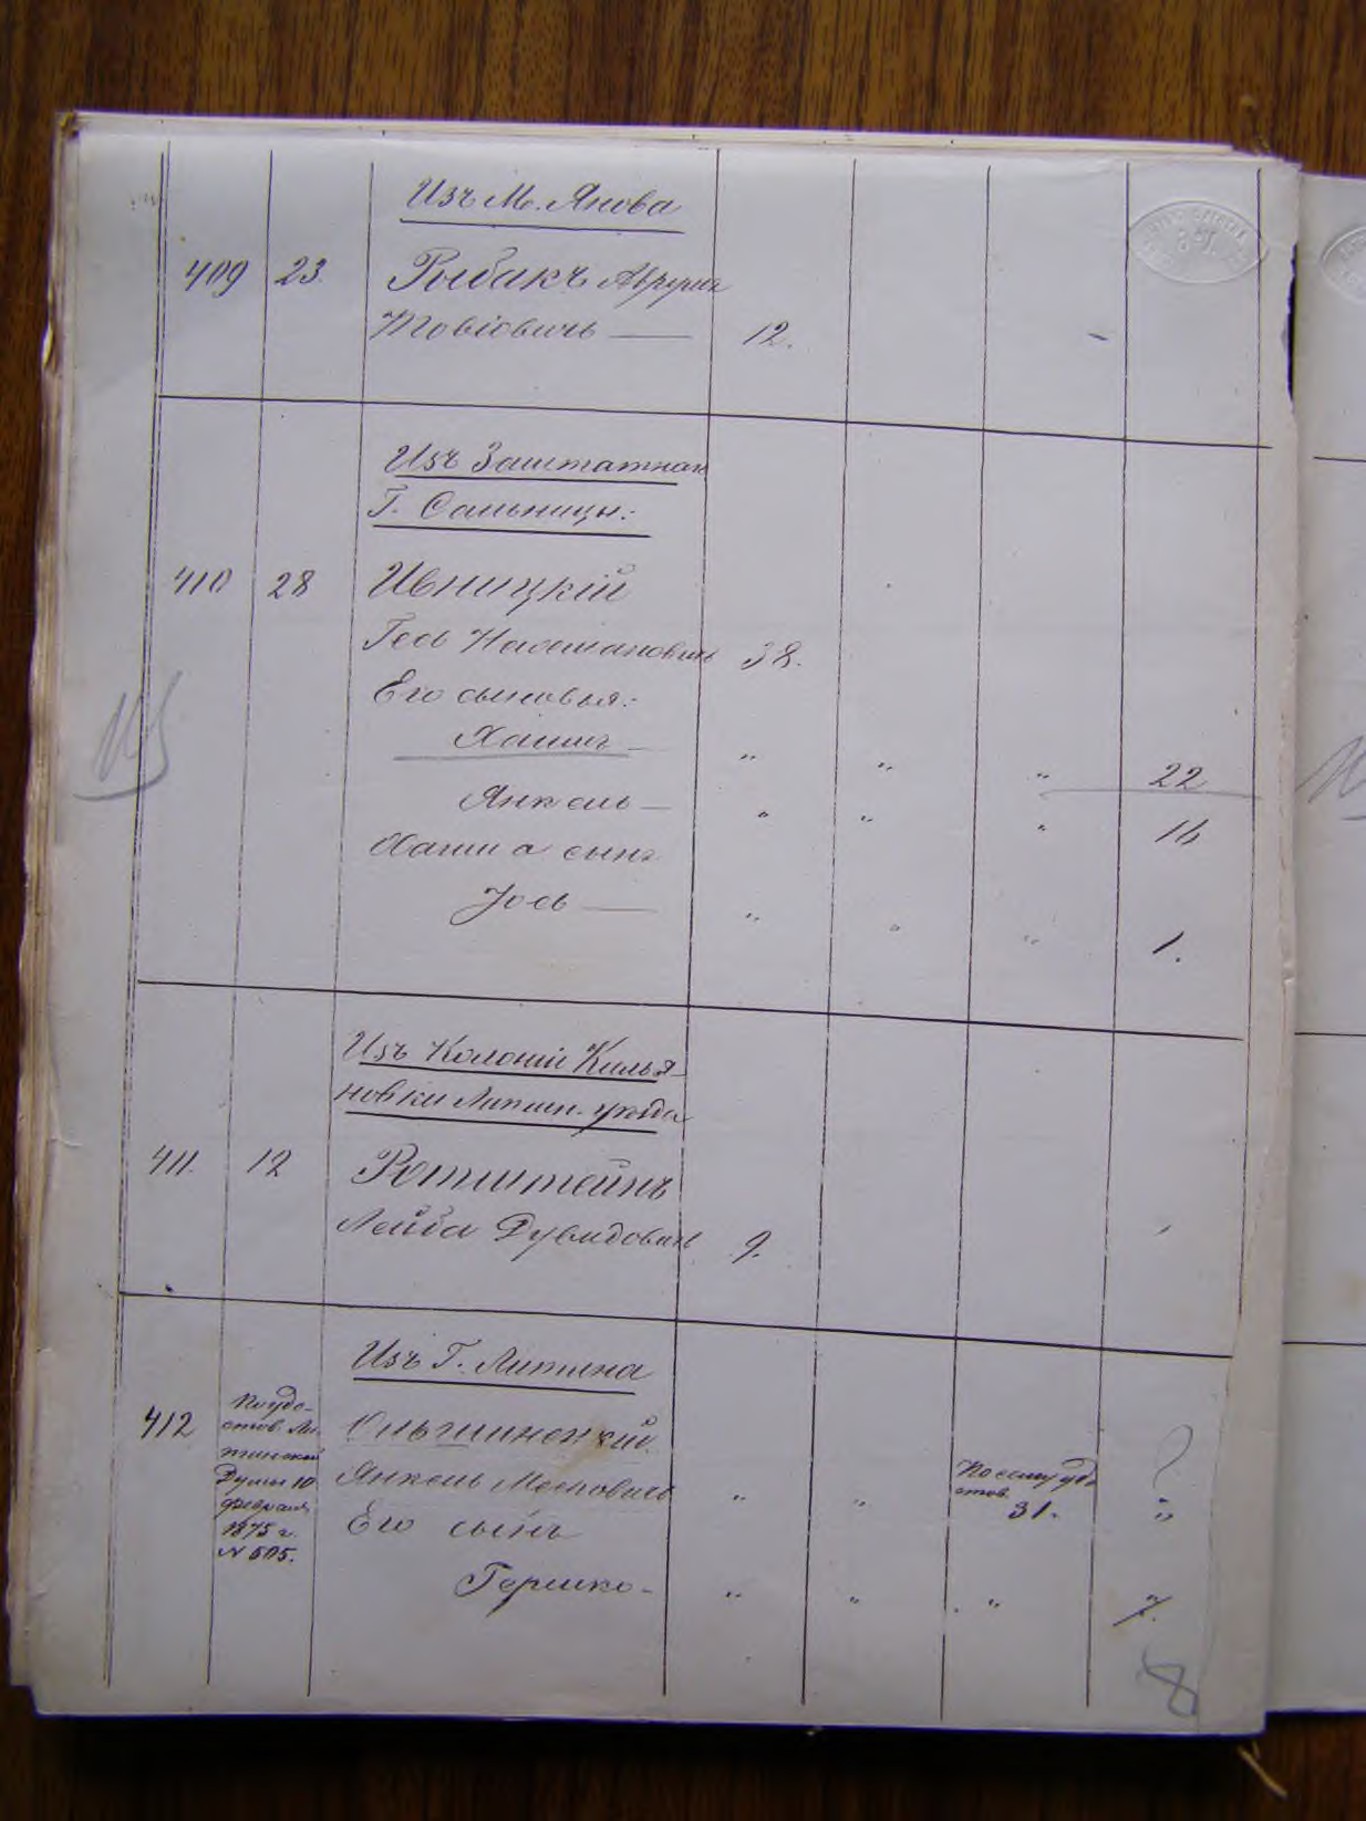 Изъ М. Янова
409 23. Рыбакъ Аврумъ
Товіовичъ — 12. -
Изъ Заштатнаг
Г. Сальницы:
410 28 Ивницкій
Гесь Нахмановичъ 38.
Его сыновья:
Хаимъ — „ „ „ 22
Янкель — „ „ „ 16
Хаима сынъ
Іось — „ „ „ 1.
Изъ Колоніи Килья-
новки Литин. уѣзда
411. 12 Ротштейнъ
Лейба Дувидовичъ 9.
Изъ Г. Литина
412 По удо-
стов. Ли-
тинской
Думы 10
февраля
1875 г.
N 505.
Ольшинскій
Янкель Мееровичъ „ „ По сему удо
стов.
31. „ ?
Его сынъ
Гершко - „ „ „ 7.
8